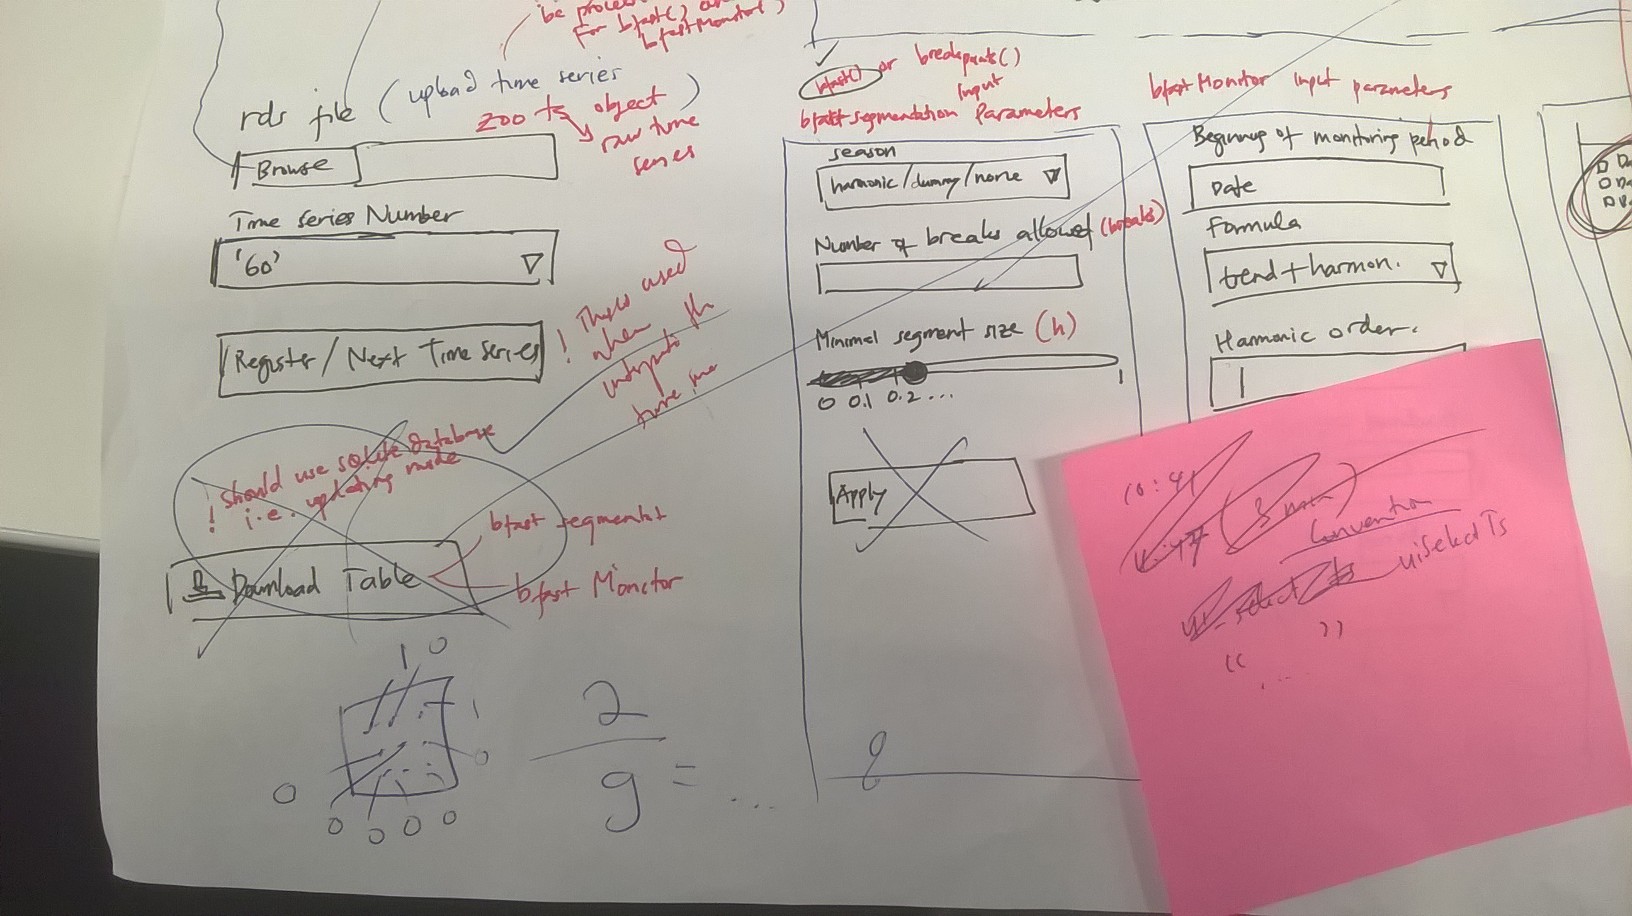 be
For bfast()
bfastMonitor()
rds file (upload time series)
zoo ts object
raw time
series
Browse
Time series Number
'60'
Register / Next Time series
! This is used
when
time
! should use sqlite database
i.e. updating mode
Download Table
bfast segments
bfast Monitor
1 0
1
0
0
0 0 0 0
2
9 = ....
bfast() or breakpoints()
input
bfast segmentation Parameters
season
harmonic/dummy/none
Number of breaks allowed (breaks)
Minimal segment size (h)
0 0.1 0.2 ...
1
Apply
bfastMonitor input parameters
Beginning of monitoring period
Date
Formula
trend + harmon.
Harmonic order.
1
10:41
Convention
uiSelectTs